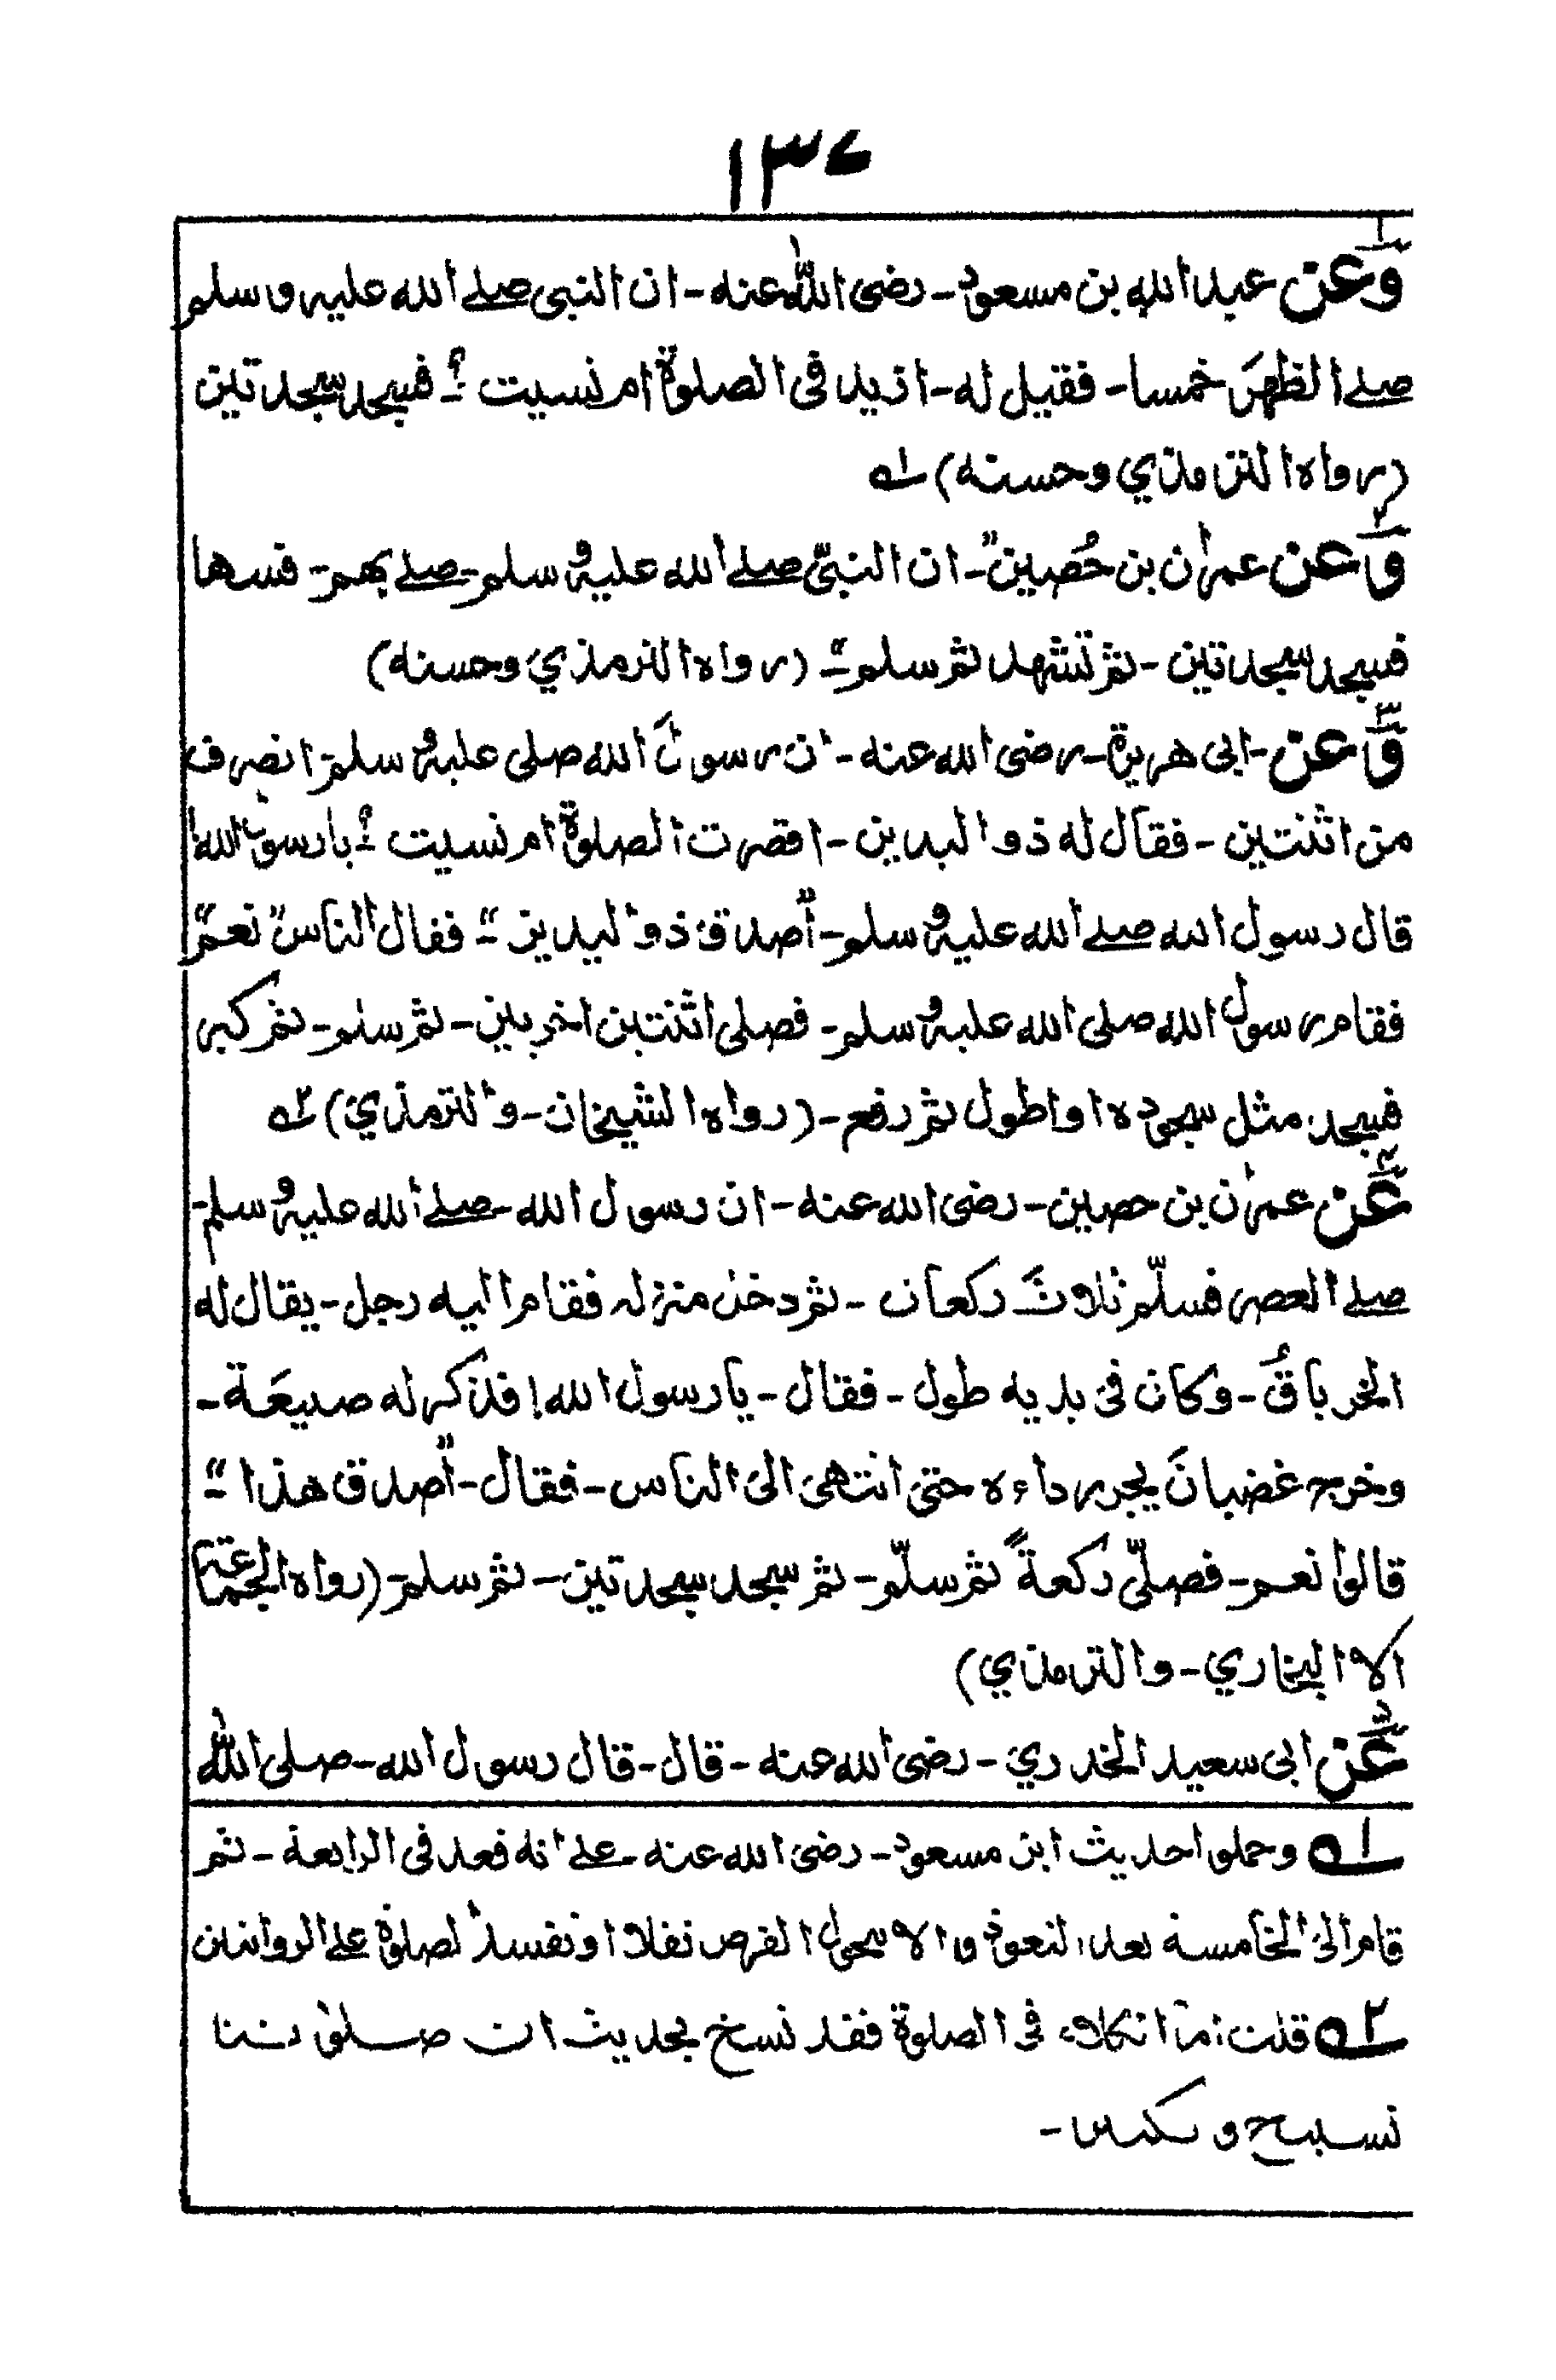 ١٣٧
١
وَعن عبد الله بن مسعود - رضى الله عنه - ان النبى صلے الله عليه وسلم
صلے الظهرَ خمسا - فقيل له - ازيد فى الصلوة ام نسيت ؟ - فسجد سجدتين
(رواه الترمذي وحسنه) ١ه
٢
وَعن عمران بن حُصين" - ان النبىّ صلے الله عليه وسلم - صلے بهم - فسها
فسجد سجدتين - ثم تشهد ثم سلم" - (رواه الترمذي وحسنه)
٣
وَّعن - ابى هريرة - رضى الله عنه - ان رسولَ الله صلى عليه وسلم - انصرف
من اثنتين - فقال له ذو اليدين - اقصرت الصلوة ام نسيت ؟ - يا رسول الله!
قال رسول الله صلے الله عليه وسلم - "أصدق ذو اليدين" - فقال الناس "نعم"
فقام رسول الله صلى الله عليه وسلم - فصلى اثنتين اخريين - ثم سلم - ثم كبر
فسجد مثل سجوده او اطول ثم رفع - (رواه الشيخان - والترمذي) ٢ه
٤
عَّن عمران بن حصين - رضى الله عنه - ان رسول الله - صلے الله عليه وسلم -
صلے العصر فسلّم ثلاث ركعات - ثم دخل منزله فقام اليه رجل - يقال له
الخرباقُ - وكان فى يديه طول - فقال - يا رسول الله! فذكر له صنيعَة -
وخرج غضبانَ يجر رداءه حتى انتهى الى الناس - فقال - "أصدق هذا" -
قالوا نعم - فصلّى ركعةً ثم سلّم - ثم سجد سجدتين - ثم سلم - (رواه الجماعة
الا البخاري - والترمذي)
٥
عَّن ابى سعيد الخدري - رضى الله عنه - قال - قال رسول الله - صلى الله
١ه وحملوا حديث ابن مسعود - رضى الله عنه - علے انه قعد فى الرابعة - ثم
قام الى الخامسة بعد القعود والا يحول الفرض نفلا او تفسد الصلوة علے الروايتين
٢ه قلت اما الكلام فى الصلوة فقد نسخ بحديث ان صلوتنا
تسبيح و تكبير -